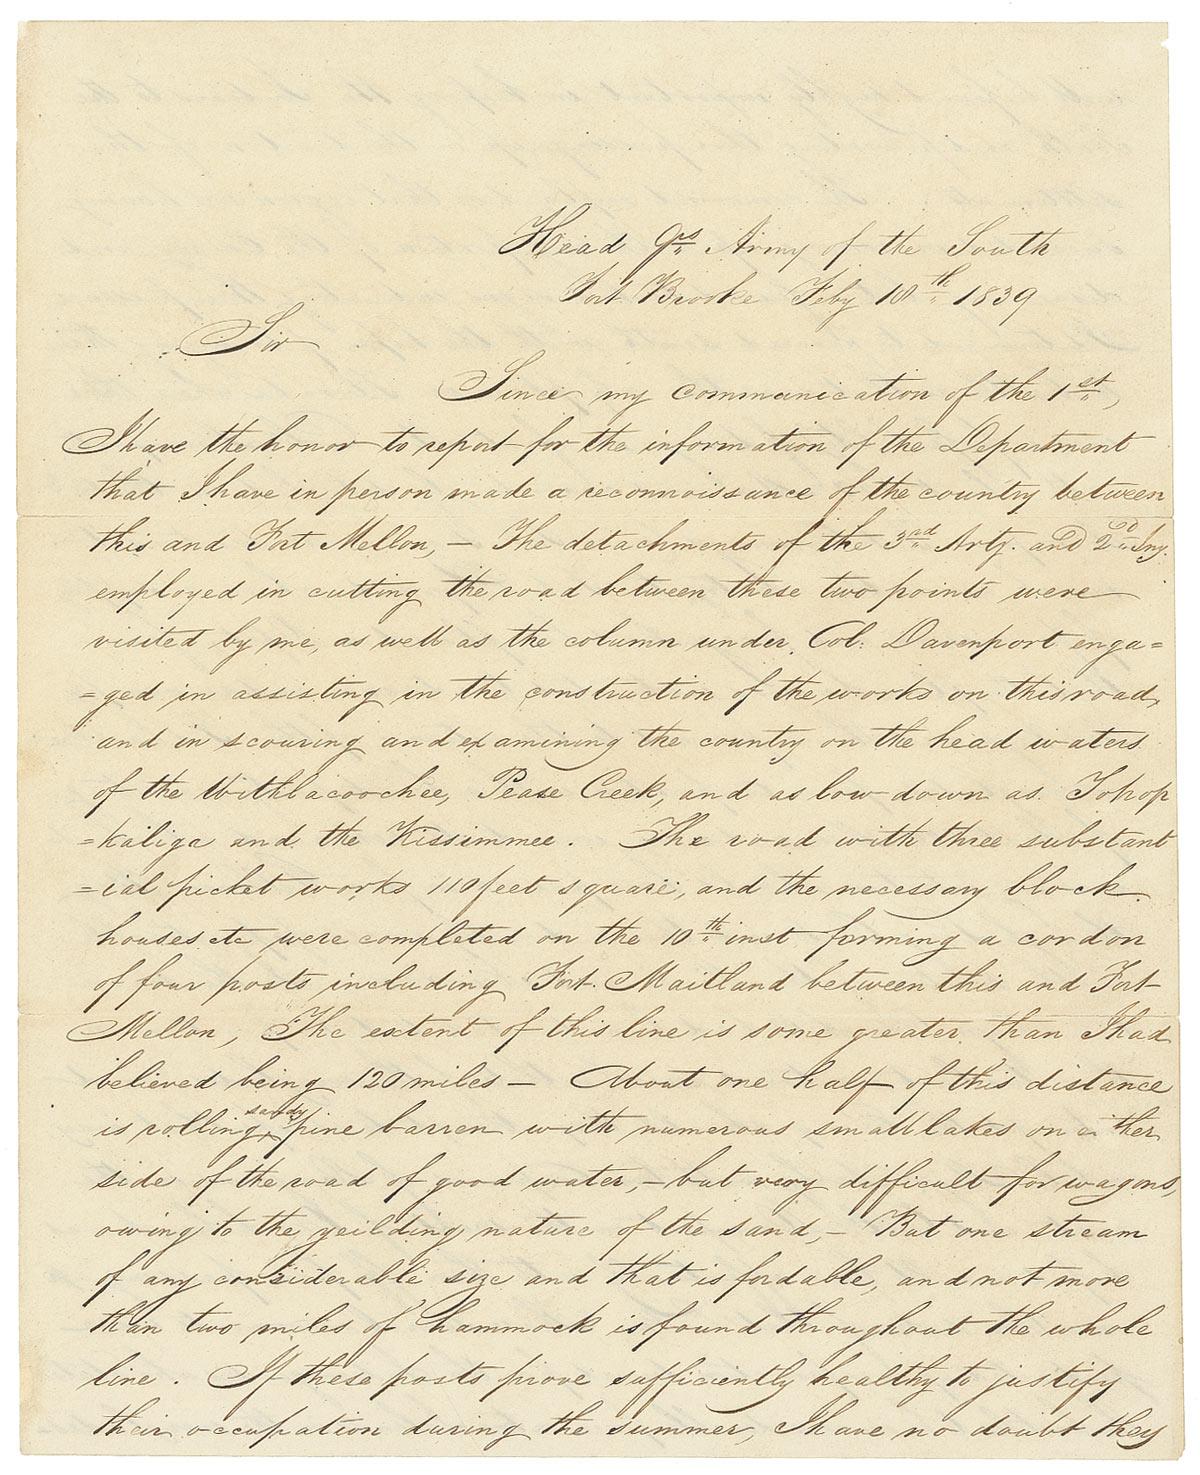 Head Qrs Army of the South
Fort Brooke Feby 18th 1839
Sir
Since my communication of the 1st,
I have the honor to report for the information of the Department
that I have in person made a reconnoissance of the country between
this and Fort Mellon, — The detachments of the 3rd Arty. and 2nd Iny.
employed in cutting the road between these two points were
visited by me, as well as the column under Col: Davenport enga=
=ged in assisting in the construction of the works on this road,
and in scouring and examining the country on the head waters
of the Withlacoochee, Pease Creek, and as low down as Tohop
=kaliga and the Kissimmee. The road with three substant
=ial picket works 110 feet square, and the necessary block
houses etc were completed on the 10th inst forming a cordon
of four posts including Fort. Maitland between this and Fort
Mellon, The extent of this line is some greater than I had
believed being 120 miles — About one half of this distance
is rolling sandy pine barren with numerous small lakes on either
side of the road of good water, — but very difficult for wagons,
owing to the yeilding nature of the sand, — But one stream
of any considerable size and that is fordable, and not more
than two miles of hammock is found throughout the whole
line. If these posts prove sufficiently healthy to justify
their occupation during the summer, I have no doubt they